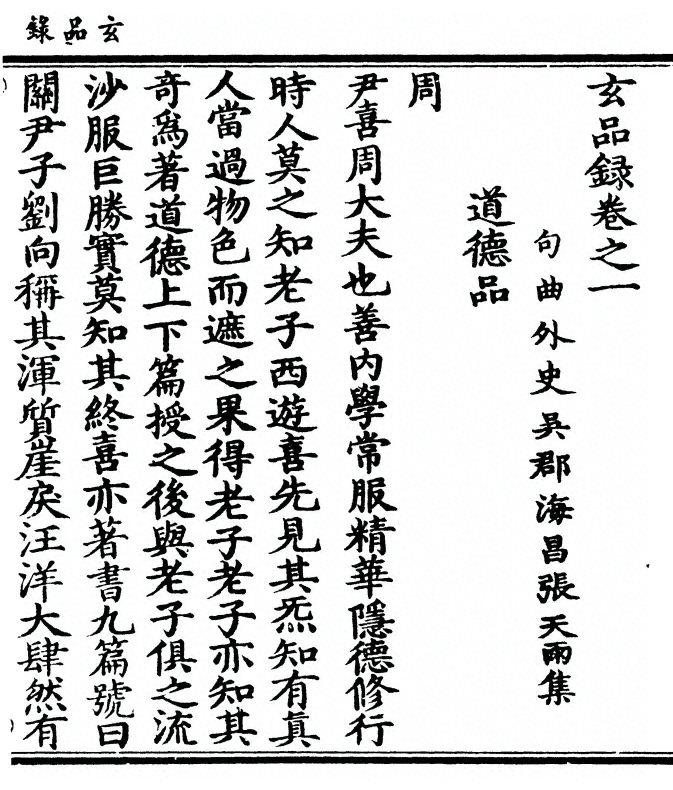 玄品錄
玄品録卷之一
句曲外史吳郡海昌張天雨集
道德品
周
尹喜周大夫也善内學常服精華隱德修行
時人莫之知老子西遊喜先見其炁知有真
人當過物色而遮之果得老子老子亦知其
奇爲著道德上下篇授之後與老子俱之流
沙服巨勝實莫知其終喜亦著書九篇號曰
關尹子劉向稱其渾質崖戾汪洋大肆然有